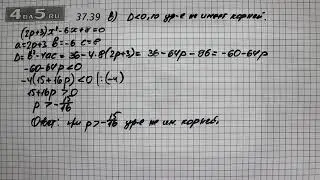 4DA5.RU
37.39 в) D<0, то ур-е не имеет корней.
(2p+3)x²-6x+8=0
a=2p+3 b=-6 c=8
D=b²-4ac=36-4·8(2p+3)=36-64p-96=-60-64p
-60-64p<0
-4(15+16p)<0 |:(-4)
15+16p>0
p>-15/16
Ответ: при p>-15/16 ур-е не им. корней.